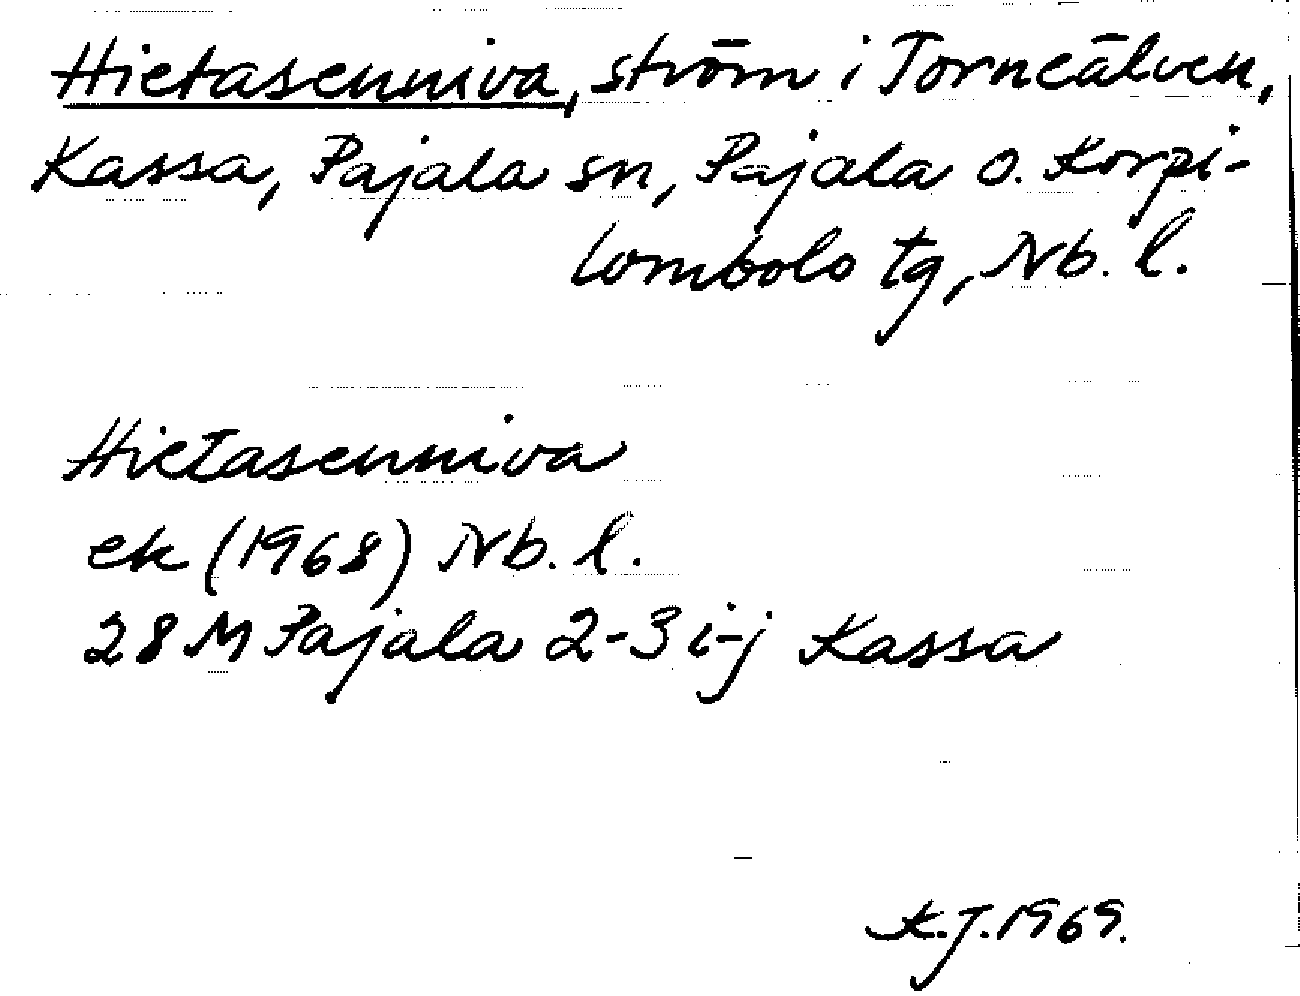 Hietasenniva, ström i Torneälven,
Kassa, Pajala sn, Pajala o. Korpi-
lombolo tg, Nb. l.
Hietasenniva
ek (1968) Nb. l.
28 M Pajala 2-3 i-j Kassa
K.J. 1969.